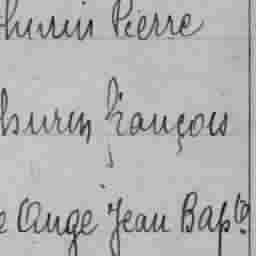 thurin Pierre
hurin François
e Ange Jean Bapte